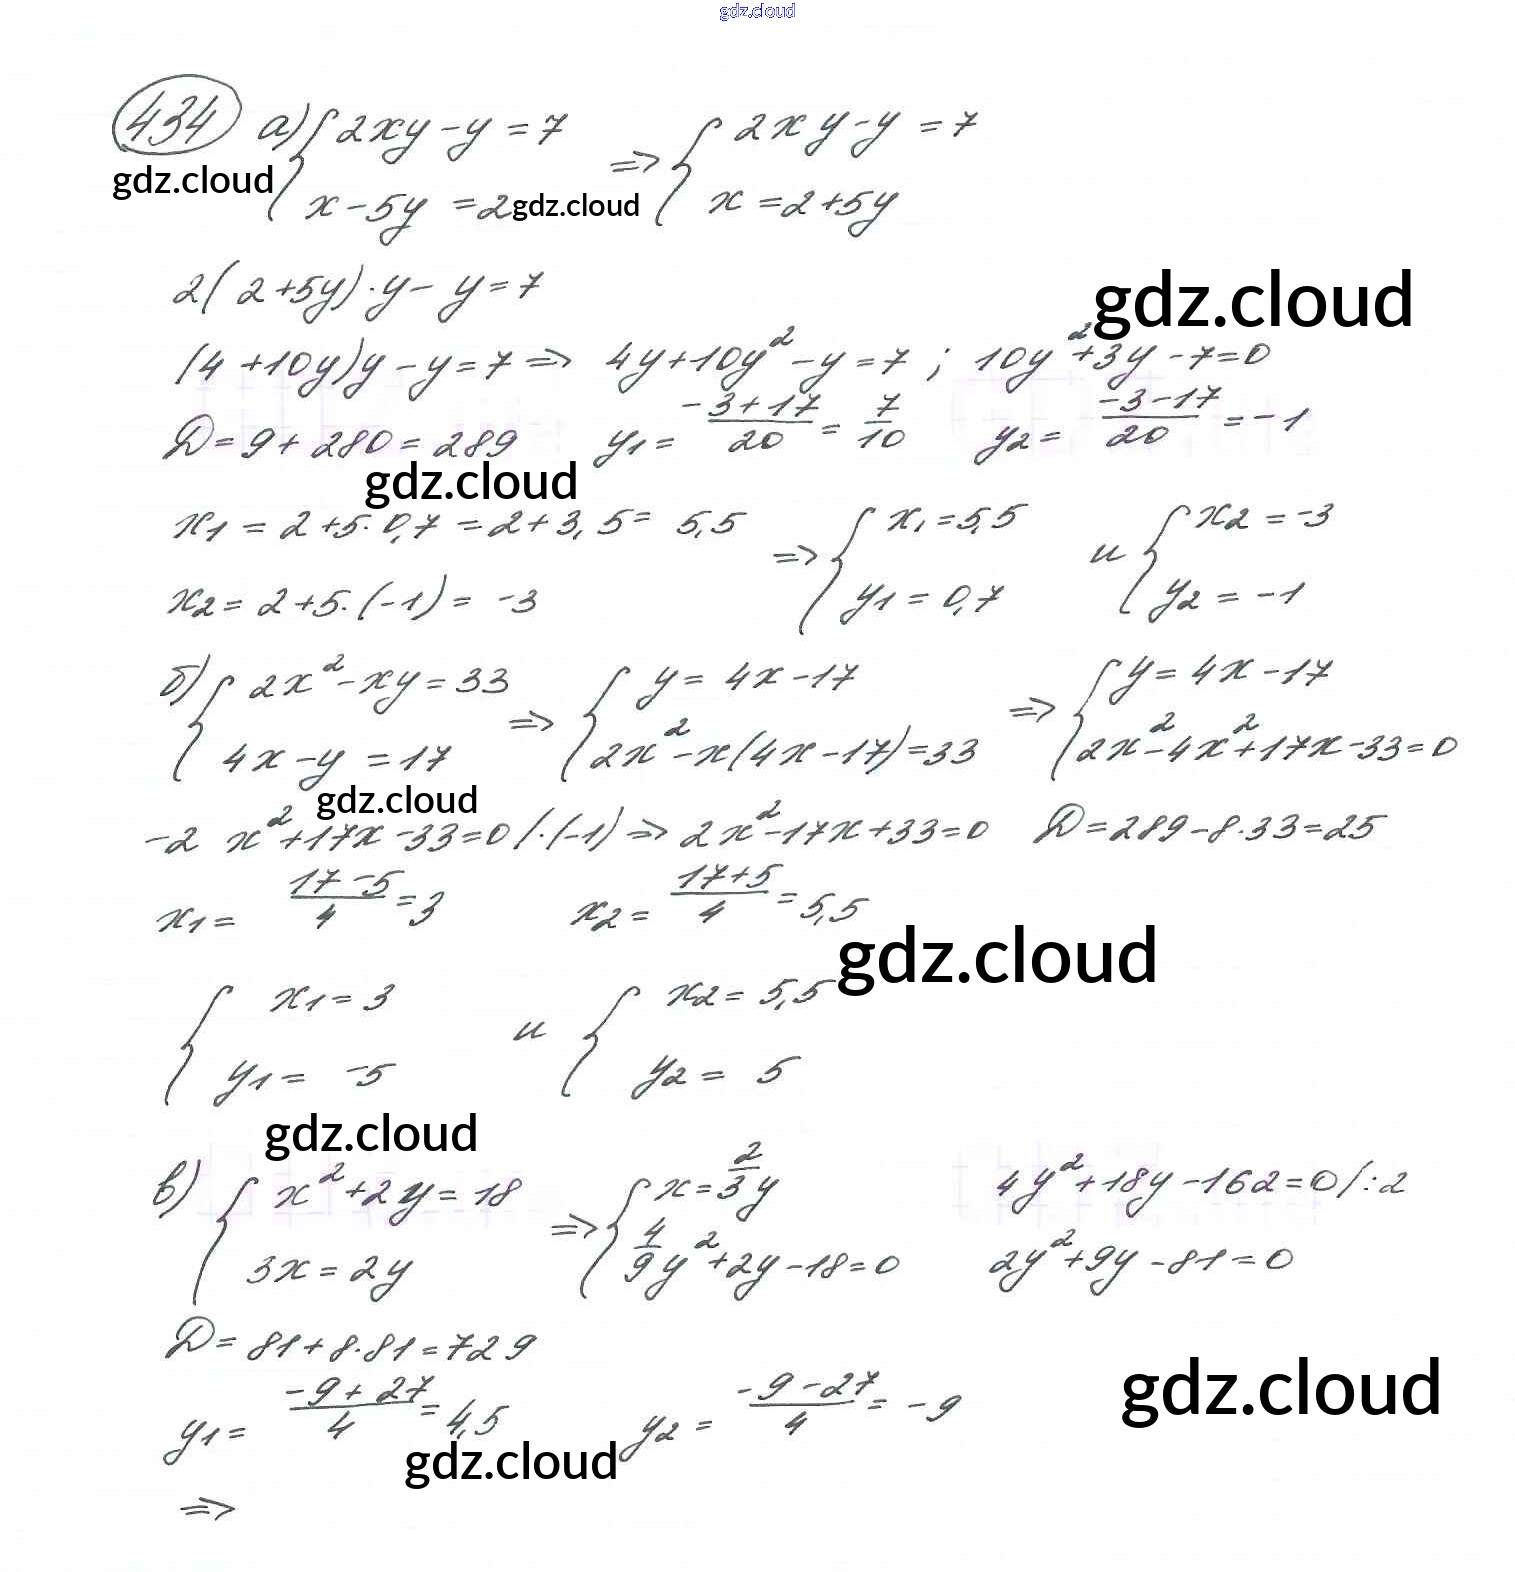 gdz.cloud
434 а) { 2xy - y = 7 => { 2xy - y = 7
gdz.cloud
x - 5y = 2 x = 2 + 5y
gdz.cloud
2(2+5y)·y - y = 7
gdz.cloud
(4+10y)y - y = 7 => 4y + 10y² - y = 7 ; 10y² + 3y - 7 = 0
D = 9 + 280 = 289 y1 = (-3+17)/20 = 7/10 y2 = (-3-17)/20 = -1
gdz.cloud
x1 = 2 + 5·0,7 = 2 + 3,5 = 5,5 => { x1 = 5,5 и { x2 = -3
x2 = 2 + 5·(-1) = -3 y1 = 0,7 y2 = -1
б) { 2x² - xy = 33 => { y = 4x - 17 => { y = 4x - 17
4x - y = 17 2x² - x(4x - 17) = 33 2x² - 4x² + 17x - 33 = 0
gdz.cloud
-2x² + 17x - 33 = 0 /·(-1) => 2x² - 17x + 33 = 0 D = 289 - 8·33 = 25
x1 = (17-5)/4 = 3 x2 = (17+5)/4 = 5,5
gdz.cloud
{ x1 = 3 и { x2 = 5,5
y1 = -5 y2 = 5
gdz.cloud
в) { x² + 2y = 18 => { x = 2/3 y 4y² + 18y - 162 = 0 /:2
3x = 2y 4/9 y² + 2y - 18 = 0 2y² + 9y - 81 = 0
D = 81 + 8·81 = 729
gdz.cloud
y1 = (-9+27)/4 = 4,5 y2 = (-9-27)/4 = -9
gdz.cloud
=>